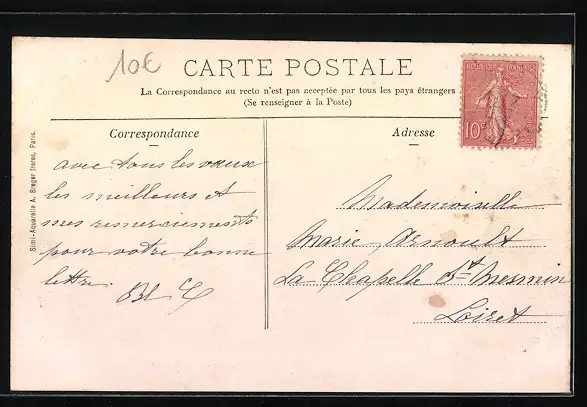 10€
CARTE POSTALE
La Correspondance au recto n'est pas acceptée par tous les pays étrangers
(Se renseigner à la Poste)
RÉPUBLIQUE FRANÇAISE
10c
Correspondance
Adresse
Simi-Aquarelle A. Breger frères, Paris.
avec tous les vœux
les meilleurs et
mes remerciements
pour votre bonne
lettre
Mademoiselle
Marie Arnoult
La Chapelle St Mesmin
Loiret